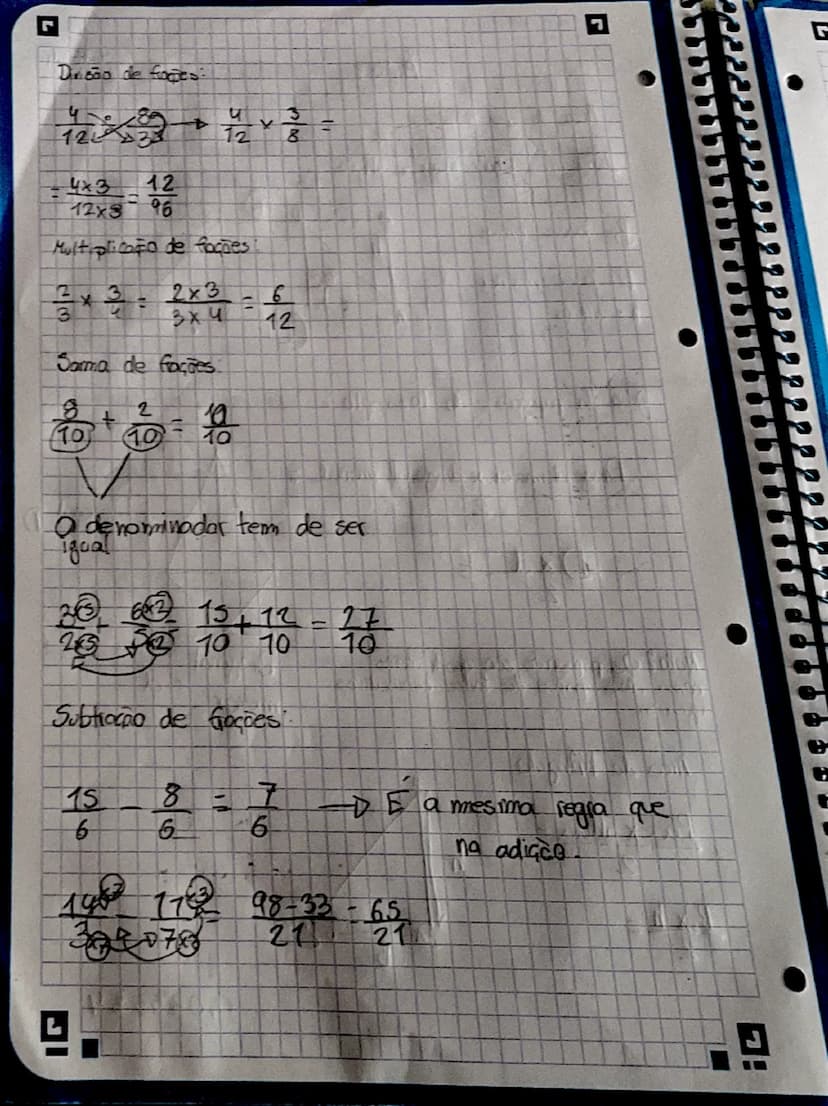 Divisão de fações:
4/12 ÷ 8/3 → 4/12 × 3/8 =
= 4×3/12×8 = 12/96
Multiplicação de fações:
2/3 × 3/4 = 2×3/3×4 = 6/12
Soma de fações:
8/10 + 2/10 = 10/10
O denominador tem de ser
igual
3×5/2×5 + 6×2/5×2 = 15/10 + 12/10 = 27/10
Subtração de frações:
15/6 - 8/6 = 7/6 → É a mesma regra que
na adição.
14×7/3×7 - 11×3/7×3 = 98-33/21 = 65/21